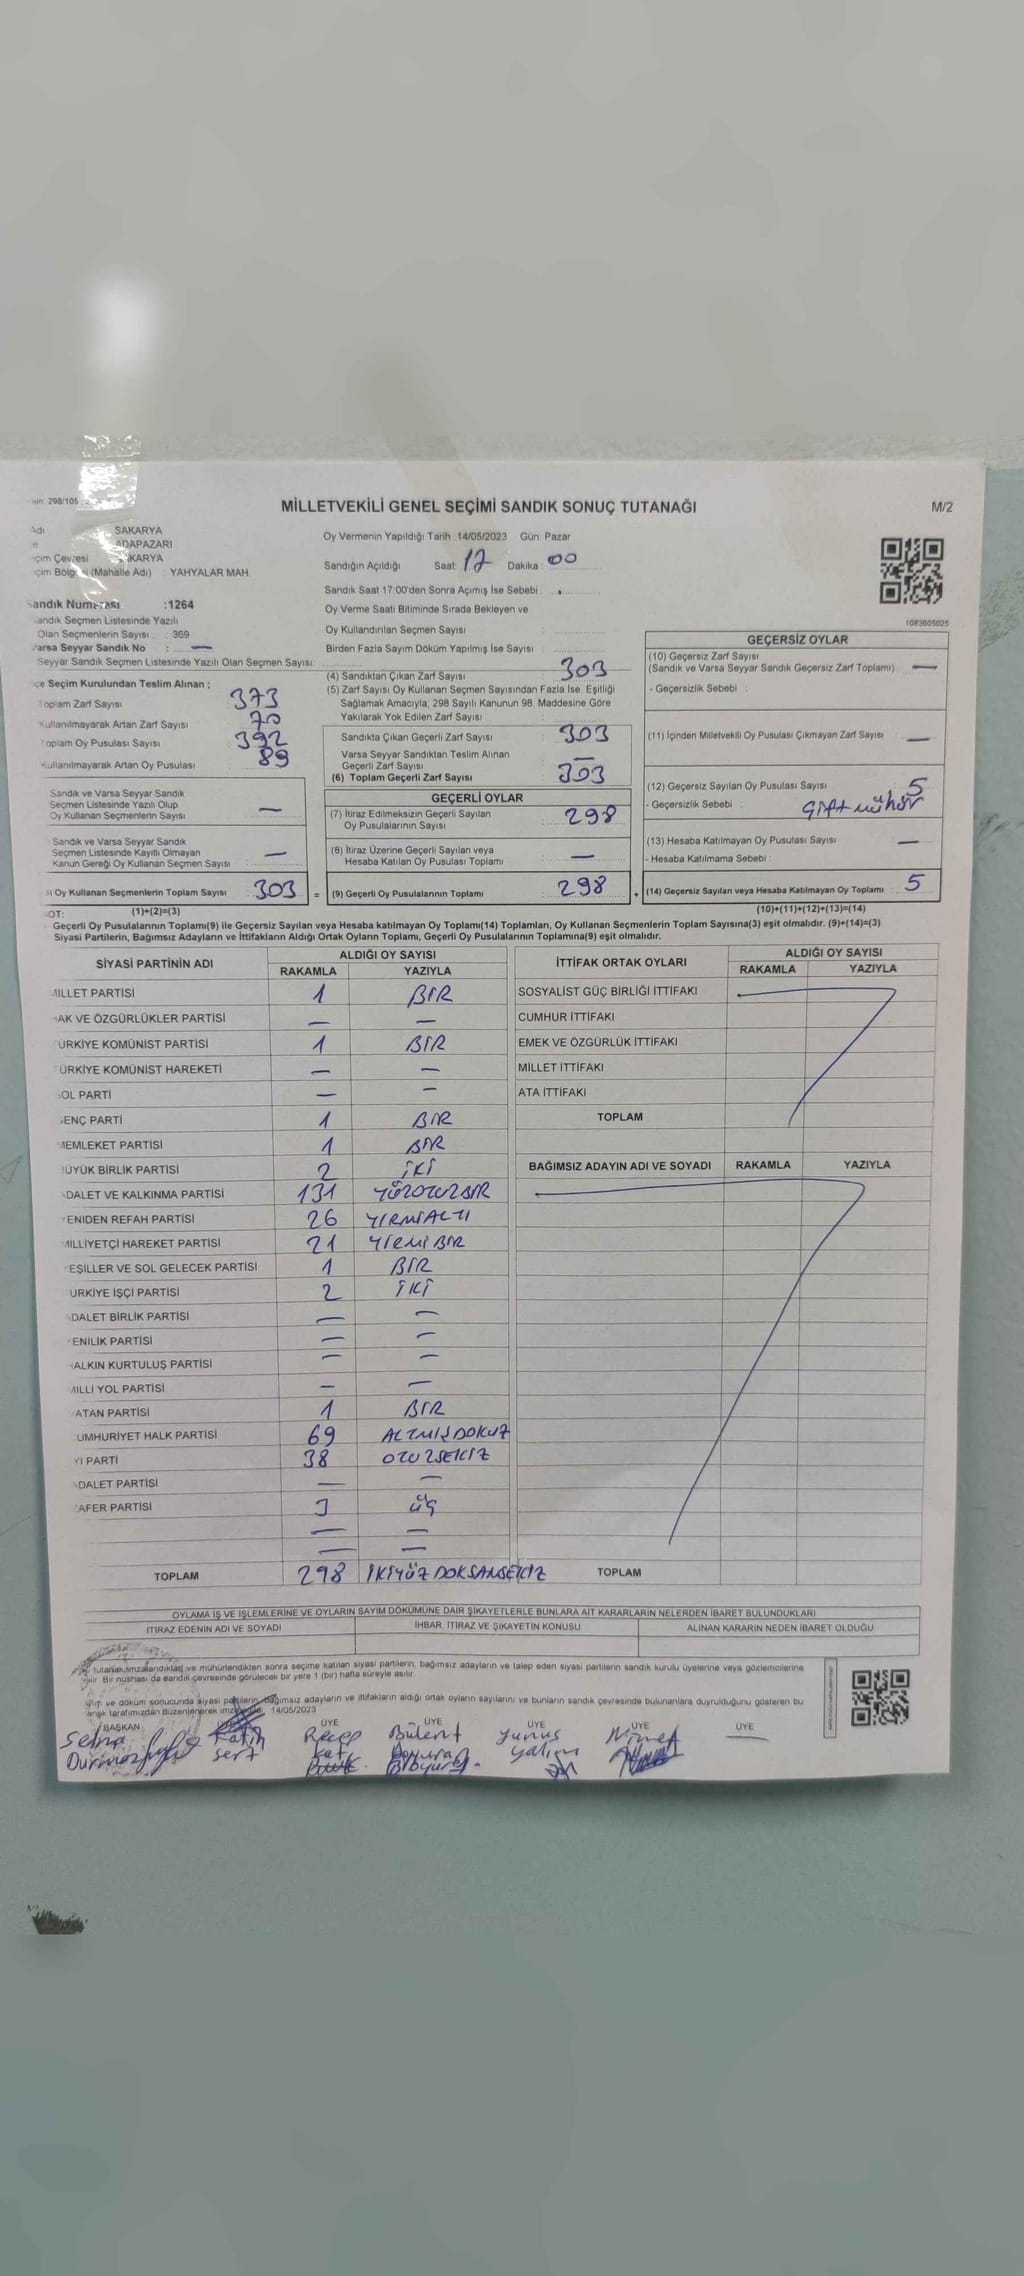 298/105
MİLLETVEKİLİ GENEL SEÇİMİ SANDIK SONUÇ TUTANAĞI
M/2
Adı SAKARYA
ADAPAZARI
çim Çevresi KARYA
çim Bölgesi (Mahalle Adı) : YAHYALAR MAH.
Sandık Numarası :1264
andık Seçmen Listesinde Yazılı
Olan Seçmenlerin Sayısı : 369
Varsa Seyyar Sandık No : —
Seyyar Sandık Seçmen Listesinde Yazılı Olan Seçmen Sayısı:
Oy Vermenin Yapıldığı Tarih :14/05/2023 Gün: Pazar
Sandığın Açıldığı Saat: 17 Dakika : 00
Sandık Saat 17:00'den Sonra Açımış İse Sebebi :
Oy Verme Saati Bitiminde Sırada Bekleyen ve
Oy Kullandırılan Seçmen Sayısı :
Birden Fazla Sayım Döküm Yapılmış İse Sayısı :
1083605025
çe Seçim Kurulundan Teslim Alınan ;
Toplam Zarf Sayısı : 373
Kullanılmayarak Artan Zarf Sayısı : 70
Toplam Oy Pusulası Sayısı : 392
Kullanılmayarak Artan Oy Pusulası : 89
Sandık ve Varsa Seyyar Sandık
Seçmen Listesinde Yazılı Olup
Oy Kullanan Seçmenlerin Sayısı : —
Sandık ve Varsa Seyyar Sandık
Seçmen Listesinde Kayıtlı Olmayan
Kanun Gereği Oy Kullanan Seçmen Sayısı : —
Oy Kullanan Seçmenlerin Toplam Sayısı 303
(1)+(2)=(3)
(4) Sandıktan Çıkan Zarf Sayısı : 303
(5) Zarf Sayısı Oy Kullanan Seçmen Sayısından Fazla İse, Eşitliği
Sağlamak Amacıyla; 298 Sayılı Kanunun 98. Maddesine Göre
Yakılarak Yok Edilen Zarf Sayısı :
Sandıkta Çıkan Geçerli Zarf Sayısı : 303
Varsa Seyyar Sandıktan Teslim Alınan
Geçerli Zarf Sayısı : —
(6) Toplam Geçerli Zarf Sayısı : 303
GEÇERLİ OYLAR
(7) İtiraz Edilmeksizin Geçerli Sayılan
Oy Pusulalarının Sayısı : 298
(8) İtiraz Üzerine Geçerli Sayılan veya
Hesaba Katılan Oy Pusulası Toplamı : —
= (9) Geçerli Oy Pusulalarının Toplamı : 298
GEÇERSİZ OYLAR
(10) Geçersiz Zarf Sayısı
(Sandık ve Varsa Seyyar Sandık Geçersiz Zarf Toplamı) : —
- Geçersizlik Sebebi :
(11) İçinden Milletvekili Oy Pusulası Çıkmayan Zarf Sayısı : —
(12) Geçersiz Sayılan Oy Pusulası Sayısı : 5
- Geçersizlik Sebebi : Çift mühür
(13) Hesaba Katılmayan Oy Pusulası Sayısı : —
- Hesaba Katılmama Sebebi :
+ (14) Geçersiz Sayılan veya Hesaba Katılmayan Oy Toplamı : 5
(10)+(11)+(12)+(13)=(14)
OT:
Geçerli Oy Pusulalarının Toplamı(9) ile Geçersiz Sayılan veya Hesaba katılmayan Oy Toplamı(14) Toplamları, Oy Kullanan Seçmenlerin Toplam Sayısına(3) eşit olmalıdır. (9)+(14)=(3)
Siyasi Partilerin, Bağımsız Adayların ve İttifakların Aldığı Ortak Oyların Toplamı, Geçerli Oy Pusulalarının Toplamına(9) eşit olmalıdır.
SİYASİ PARTİNİN ADI ALDIĞI OY SAYISI
RAKAMLA YAZIYLA
MİLLET PARTİSİ 1 BİR
AK VE ÖZGÜRLÜKLER PARTİSİ — —
ÜRKİYE KOMÜNİST PARTİSİ 1 BİR
ÜRKİYE KOMÜNİST HAREKETİ — —
SOL PARTİ — —
GENÇ PARTİ 1 BİR
MEMLEKET PARTİSİ 1 BİR
BÜYÜK BİRLİK PARTİSİ 2 İKİ
ADALET VE KALKINMA PARTİSİ 131 YÜZOTUZBİR
YENİDEN REFAH PARTİSİ 26 YİRMİALTI
MİLLİYETÇİ HAREKET PARTİSİ 21 YİRMİBİR
YEŞİLLER VE SOL GELECEK PARTİSİ 1 BİR
ÜRKİYE İŞÇİ PARTİSİ 2 İKİ
ADALET BİRLİK PARTİSİ — —
YENİLİK PARTİSİ — —
HALKIN KURTULUŞ PARTİSİ — —
MİLLİ YOL PARTİSİ — —
VATAN PARTİSİ 1 BİR
CUMHURİYET HALK PARTİSİ 69 ALTMIŞDOKUZ
İYİ PARTİ 38 OTUZSEKİZ
ADALET PARTİSİ — —
ZAFER PARTİSİ 3 ÜÇ
— —
— —
TOPLAM 298 İKİYÜZDOKSANSEKİZ
İTTİFAK ORTAK OYLARI ALDIĞI OY SAYISI
RAKAMLA YAZIYLA
SOSYALİST GÜÇ BİRLİĞİ İTTİFAKI
CUMHUR İTTİFAKI
EMEK VE ÖZGÜRLÜK İTTİFAKI
MİLLET İTTİFAKI
ATA İTTİFAKI
TOPLAM
BAĞIMSIZ ADAYIN ADI VE SOYADI RAKAMLA YAZIYLA
TOPLAM
OYLAMA İŞ VE İŞLEMLERİNE VE OYLARIN SAYIM DÖKÜMÜNE DAİR ŞİKAYETLERLE BUNLARA AİT KARARLARIN NELERDEN İBARET BULUNDUKLARI
İTİRAZ EDENİN ADI VE SOYADI İHBAR, İTİRAZ VE ŞİKAYETİN KONUSU ALINAN KARARIN NEDEN İBARET OLDUĞU
tutanak imzalandıktan ve mühürlendikten sonra seçime katılan siyasi partilerin, bağımsız adayların ve talep eden siyasi partilerin sandık kurulu üyelerine veya gözlemcilerine
Bir nüshası da sandık çevresinde görülecek bir yere 1 (bir) hafta süreyle asılır.
ve döküm sonucunda siyasi partilerin, bağımsız adayların ve ittifakların aldığı ortak oyların sayılarını ve bunların sandık çevresinde bulunanlara duyrulduğunu gösteren bu
tarafımızdan düzenlenerek 14/05/2023
BAŞKAN ÜYE ÜYE ÜYE ÜYE ÜYE
Selma Fatih Recep Bülent Yunus Nimet —
Sert Yalım